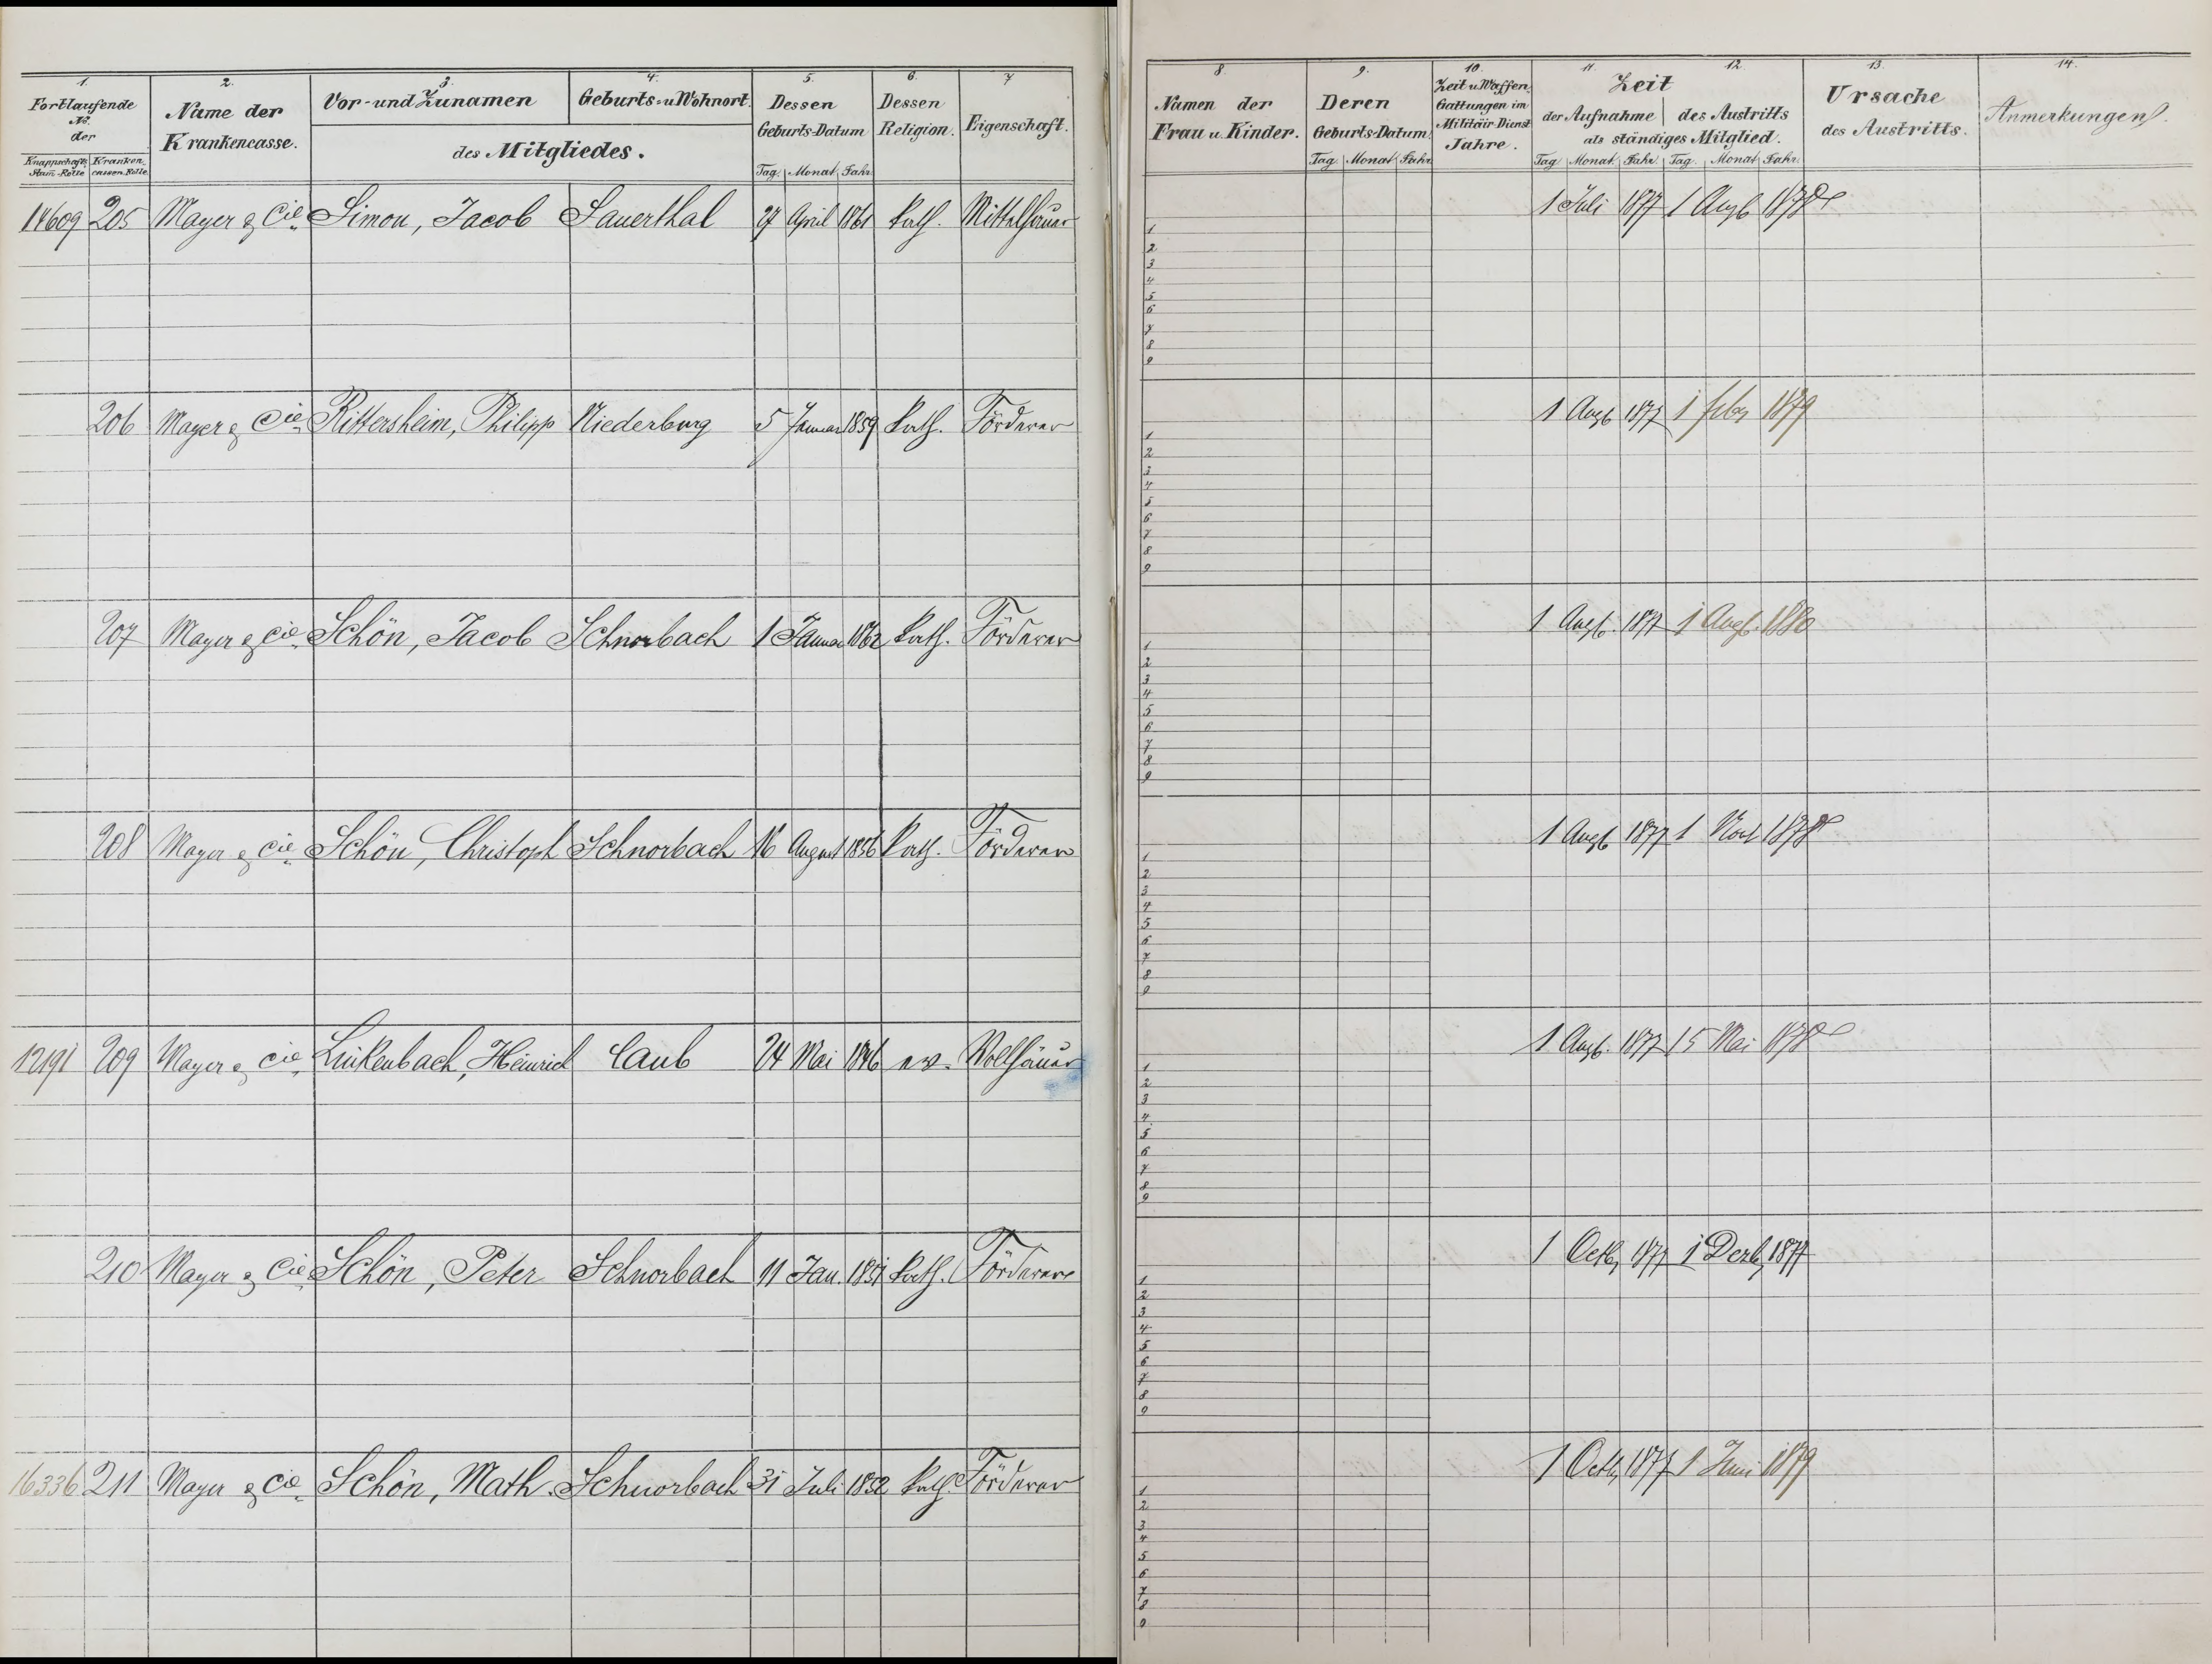 1. 2. 3. 4. 5. 6. 7
Fortlaufende No. der
Knappschafts Stam-Rolle Kranken-cassen-Rolle
Name der Krankencasse.
Vor- und Zunamen Geburts- u Wohnort.
des Mitgliedes.
Dessen Geburts-Datum
Tag. Monat. Jahr.
Dessen Religion.
Eigenschaft.
14609 205 Mayer & Cie. Simon, Jacob Sauerthal 27 April 1861 kath. Mittelhäuer
206 Mayer & Cie. Rittersheim, Philipp Niederburg 5 Januar 1859 kath. Förderer
207 Mayer & Cie. Schön, Jacob Schnorbach 1 Januar 1862 kath. Förderer
208 Mayer & Cie. Schön, Christoph Schnorbach 16 August 1856 kath. Förderer
12191 209 Mayer & Cie. Linkenbach, Heinrich Caub 24 Mai 1846 ev. Vollhäuer
210 Mayer & Cie. Schön, Peter Schnorbach 11 Jan. 1851 kath. Förderer
16336 211 Mayer & Cie. Schön, Math. Schnorbach 31 Juli 1852 kath. Förderer
8. 9. 10. 11. 12. 13. 14.
Namen der Frau u. Kinder.
Deren Geburts-Datum.
Tag. Monat Jahr.
Zeit u. Waffen-Gattungen im Militair-Dienst Jahre.
Zeit
der Aufnahme des Austritts
als ständiges Mitglied.
Tag Monat Jahr. Tag. Monat Jahr.
Ursache des Austritts.
Anmerkungen.
1 Juli 1877 1 Augt 1878
1
2
3
4
5
6
7
8
9
1 Augt 1877 1 Feby 1879
1
2
3
4
5
6
7
8
9
1 Augt. 1877 1 Augt. 1880
1
2
3
4
5
6
7
8
9
1 Augt 1877 1 Novb 1878
1
2
3
4
5
6
7
8
9
1 Augt. 1877 15 Mai 1878
1
2
3
4
5
6
7
8
9
1 Octb, 1877 1 Dezb, 1877
1
2
3
4
5
6
7
8
9
1 Octb, 1877 1 Juni 1879
1
2
3
4
5
6
7
8
9